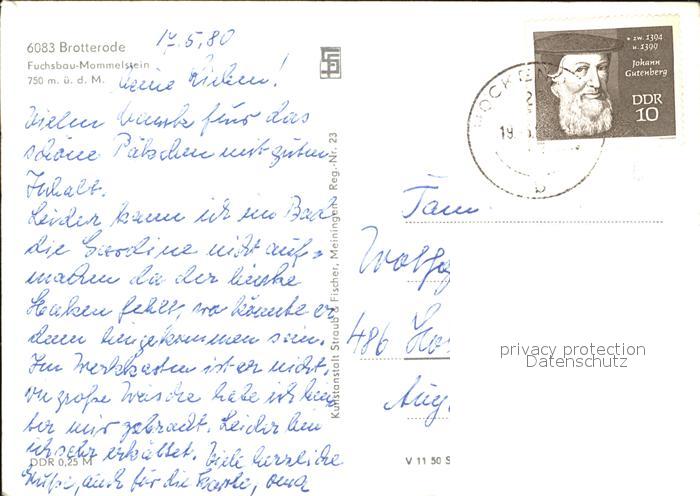 17.5.80
6083 Brotterode
Fuchsbau-Mommelstein
750 m. ü. d. M.
Meine Lieben!
Vielen Dank für das
schöne Päkchen mit guten
Inhalt.
Leider kann ich im Bad
die Gardine nicht auf-
machen da der linke
Haken fehlt, wo könnte er
denn hingekommen sein.
Im Werkkasten ist er nicht.
große Wäsche habe ich
mir gebracht. Leider bin
ich sehr erkältet. Viele herzliche
Grüße, auch für die Karte, Oma
DDR 0,25 M
Kunstanstalt Straub & Fischer, Meiningen Reg.-Nr. 23
V 11 50 S
* zw. 1394
u. 1399
Johann
Gutenberg
DDR
10
19.
b
Fam.
Wolfg
486 Ho
Aug.
privacy protection
Datenschutz